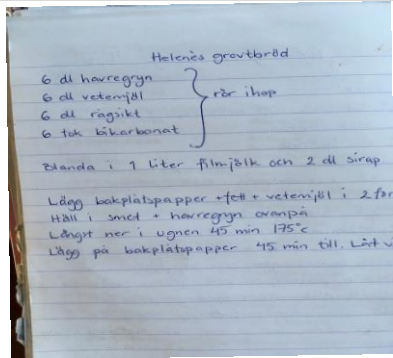 Helenes grovtbröd
6 dl havregryn
6 dl vetemjöl
6 dl rågsikt
6 tsk bikarbonat
rör ihop
Blanda i 1 liter filmjölk och 2 dl sirap
Lägg bakplåtspapper + fett + vetemjöl i 2
Häll i smet + havregryn ovanpå
Längst ner i ugnen 45 min 175°c
Lägg på bakplåtspapper 45 min till. Låt